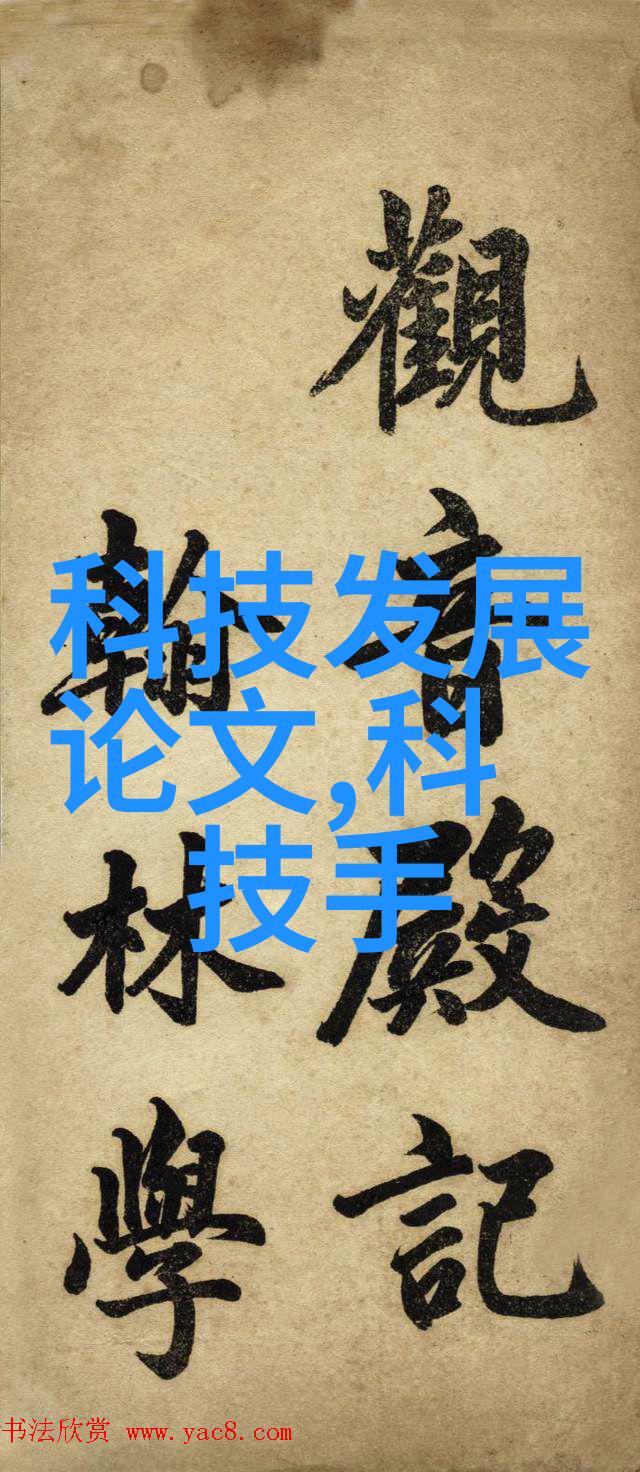 觀音殿記
翰林學
科技发展
论文,科
技手
书法欣赏 www.yac8.com